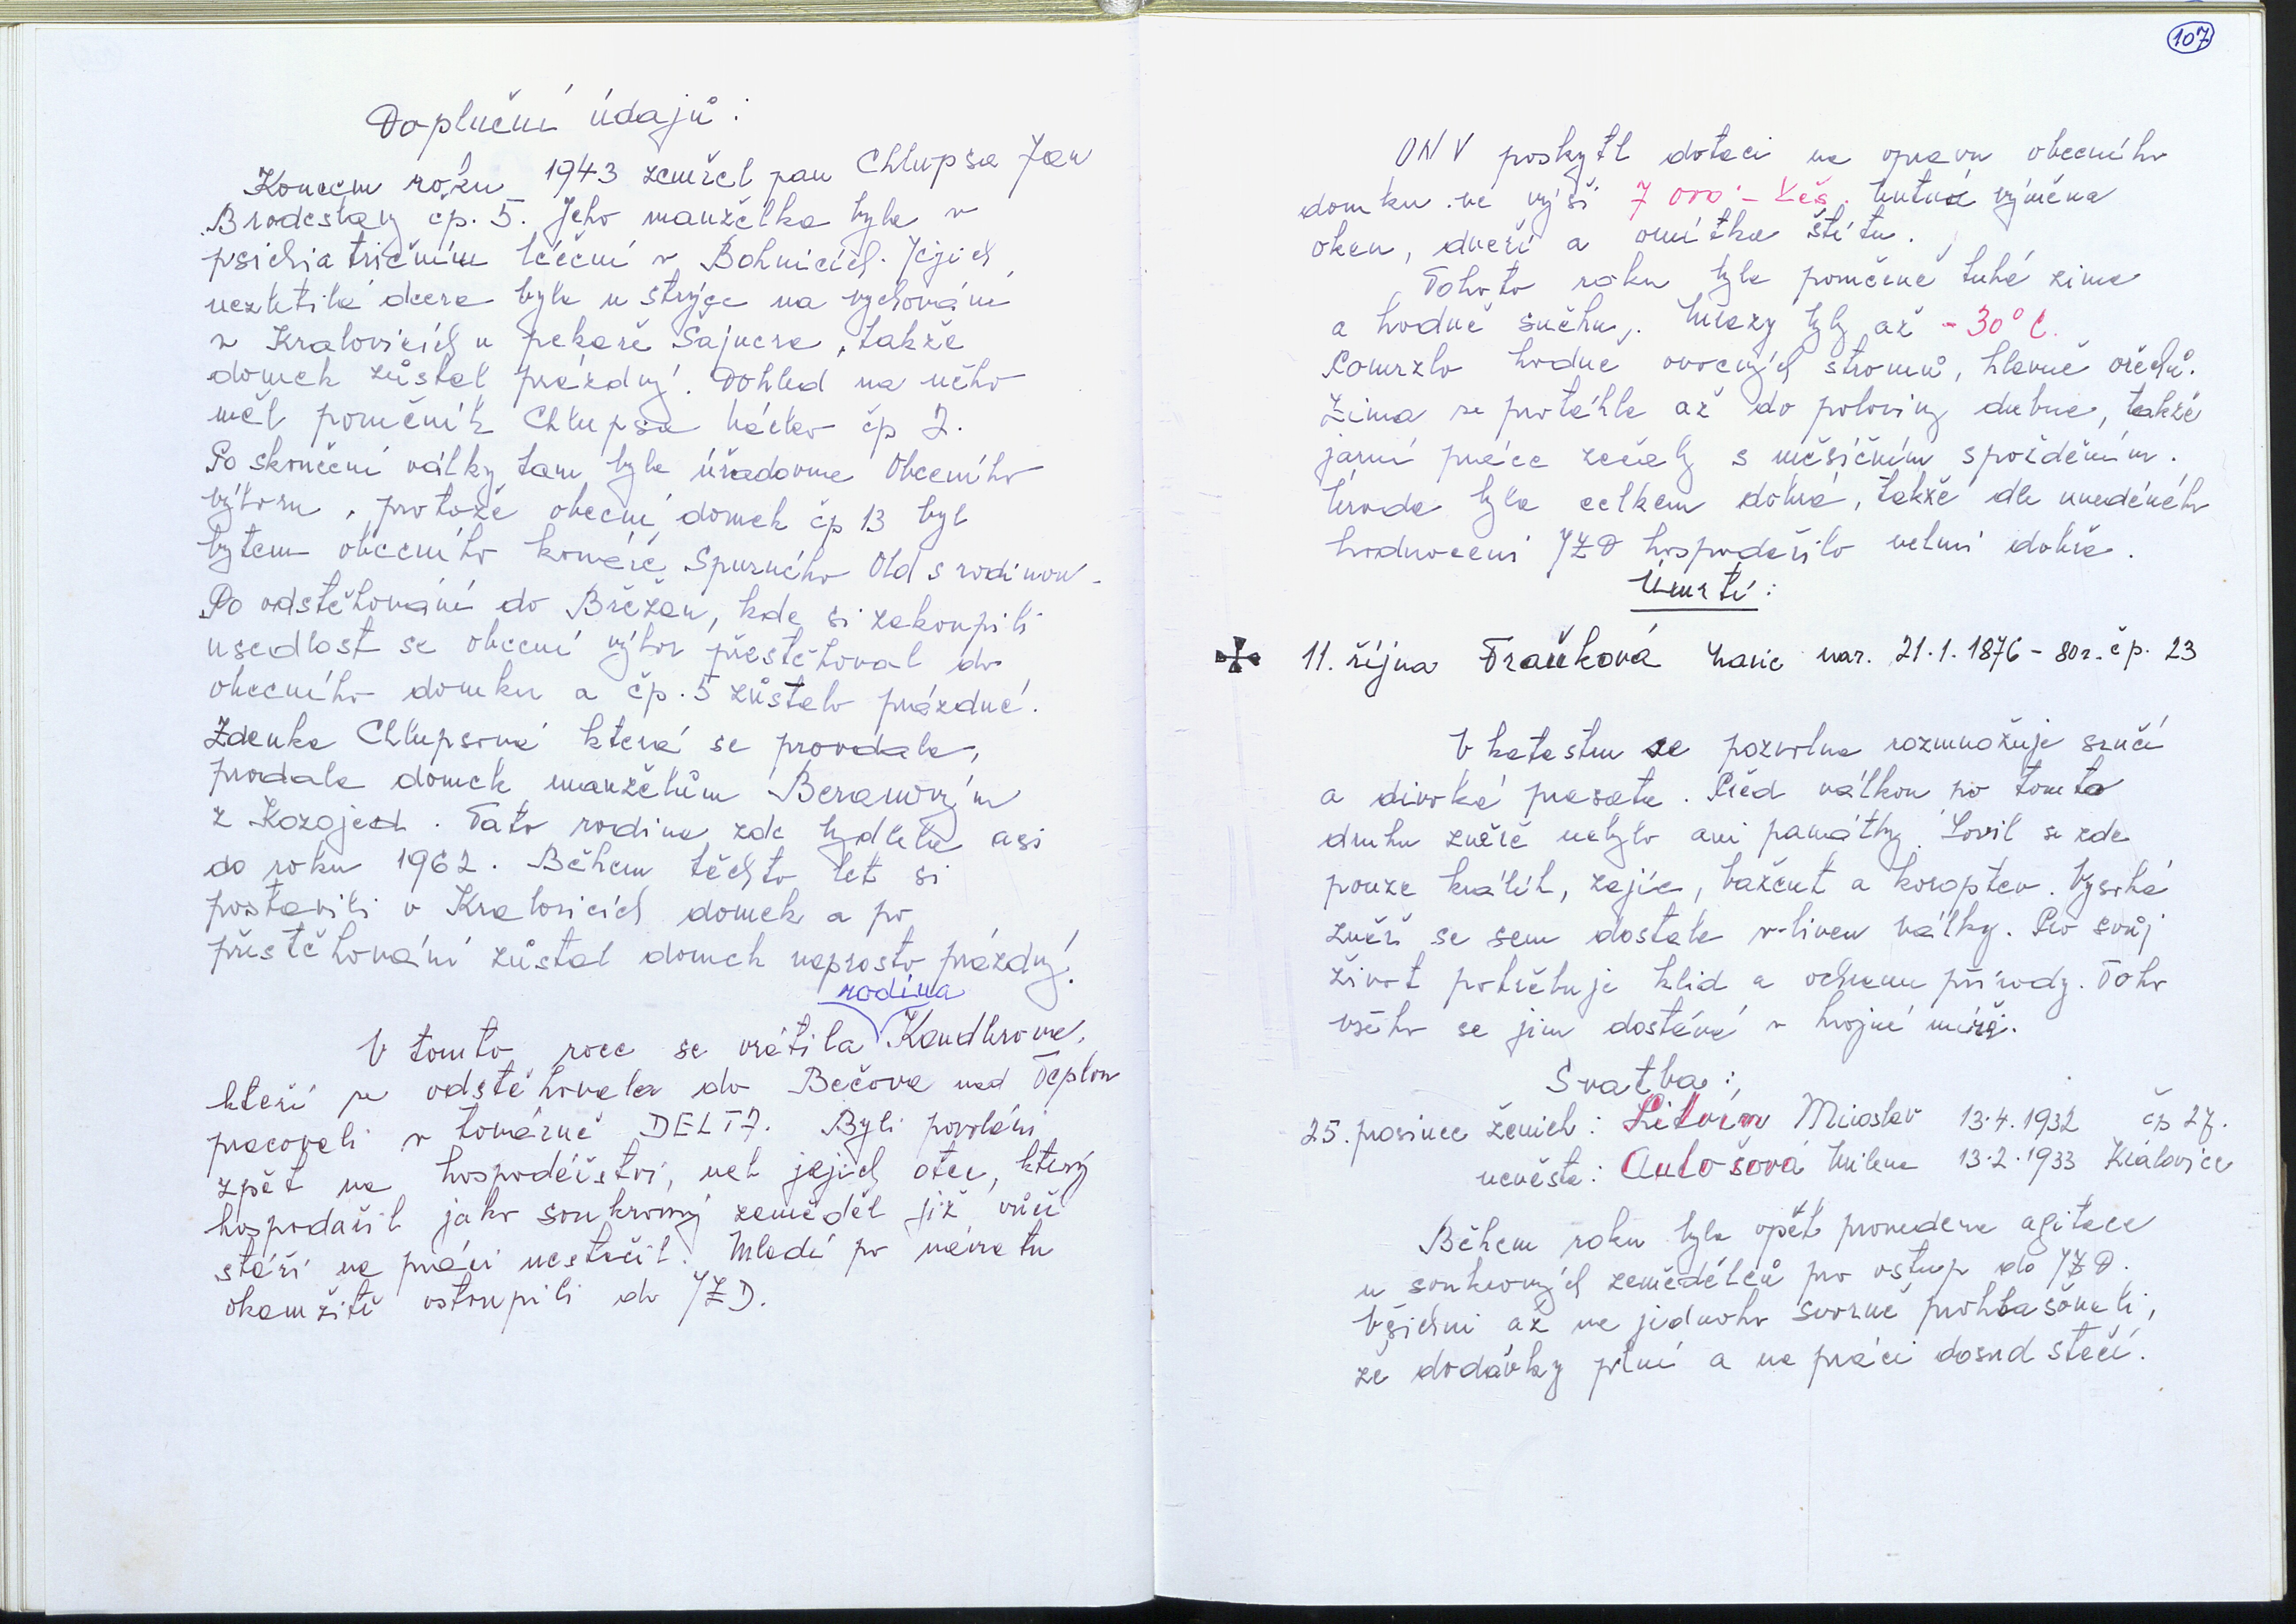 Doplnění údajů:
Koncem roku 1943 zemřel pan Chlupsa Jan
Brodeslavy čp. 5. Jeho manželka byla v
psichiatrickém léčení v Bohnicích. Jejich
nezletilá dcera byla u strýce na vychování
v Kralovicích u pekaře Šajnera, takže
domek zůstal prázdný. Dohled na něho
měl poručník Chlupsa Václav čp 2.
Po skončení války tam byla úřadovna Obecního
výboru, protože obecní domek čp 13 byl
bytem obecního kováře Spurného Old s rodinou.
Po odstěhování do Břežan, kde si zakoupili
usedlost se obecní výbor přestěhoval do
obecního domku a čp. 5 zůstalo prázdné.
Zdenka Chlupsová která se provdala,
prodala domek manželům Beranovým
z Kozojed. Tato rodina zde bydlela asi
do roku 1962. Během těchto let si
postavili v Kralovicích domek a po
přestěhování zůstal domek naprosto prázdný.
rodina
V tomto roce se vrátila Kandlerova,
kteří se odstěhovala do Bečova nad Teplou
pracovali v továrně DELTA. Byli povoláni
zpět na hospodářství, neb jejich otec, který
hospodařil jako soukromý zeměděl již vůči
stáří na práci nestačil. Mladí po návratu
okamžitě vstoupili do JZD.
107
ONV poskytl dotaci na opravu obecního
domku ve výši 7 000 - Kčs. nutná výměna
oken, dveří a omítka štítu.
Tohoto roku byla poměrně tuhá zima
a hodně sněhu. Mrazy byly až - 30° C.
Pomrzlo hodně ovocných stromů, hlavně ořechů.
Zima se protáhla až do poloviny dubna, takže
jarní práce začaly s měsíčním spožděním.
Úroda byla celkem dobrá, takže dle uvedeného
hodnocení JZD hospodařilo velmi dobře.
Úmrtí:
11. října Fraňková Marie nar. 21.1.1876 - 80r. čp. 23
V katastru se pozvolna rozmnožuje srnčí
a divoká prasata. Před válkou po tomto
druhu zvěře nebylo ani památky. Lovil se zde
pouze králík, zajíc, bažant a koroptev. Vysoká
zvěř se sem dostala vlivem války. Pro svůj
život potřebuje klid a ochranu přírody. Toho
všeho se jim dostává v hojné míře.
Svatba:
25. prosince ženich: Litvín Miroslav 13.4.1932 čp 27.
nevěsta: Antošová Milena 13.2.1933 Kralovice
Během roku byla opět provedena agitace
u soukromých zemědělců pro vstup do JZD.
Všichni až na jednoho svorně prohlašovali,
že dodávky plní a na práci dosud stačí.